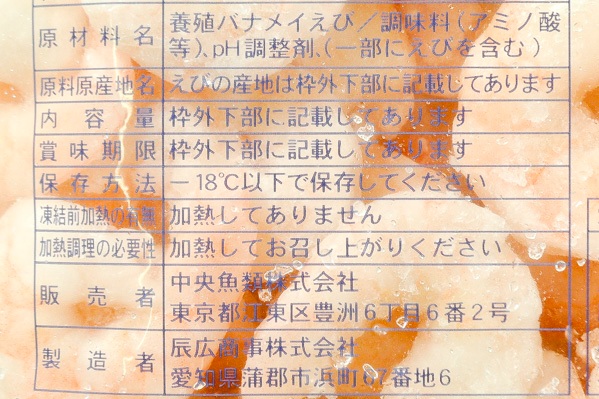 原材料名 養殖バナメイえび／調味料(アミノ酸
等)、pH調整剤、(一部にえびを含む)
原料原産地名 えびの産地は枠外下部に記載してあります
内容量 枠外下部に記載してあります
賞味期限 枠外下部に記載してあります
保存方法 －18℃以下で保存してください
凍結前加熱の有無 加熱してありません
加熱調理の必要性 加熱してお召し上がりください
販売者 中央魚類株式会社
東京都江東区豊洲6丁目6番2号
製造者 辰広商事株式会社
愛知県蒲郡市浜町67番地6